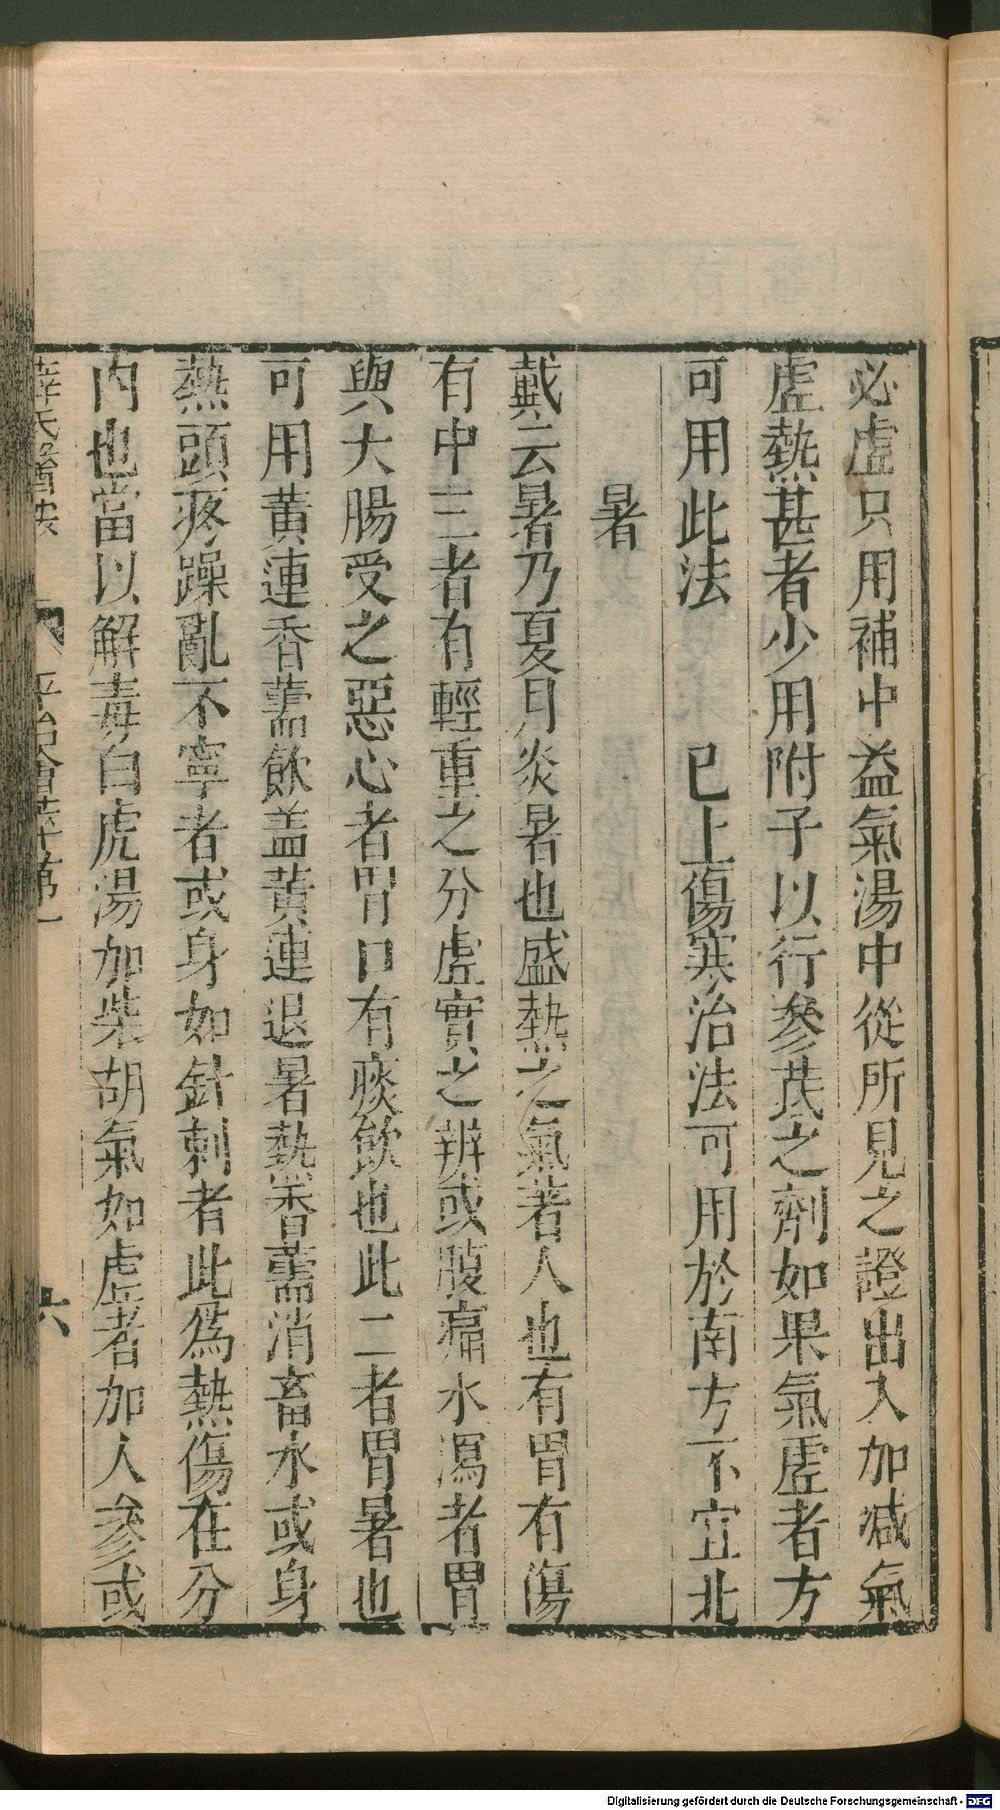 必虛只用補中益氣湯中從所見之證出入加減氣
虛熱甚者少用附子以行參芪之劑如果氣虛者方
可用此法　　已上傷寒治法可用於南方不宜北
暑
戴云暑乃夏月炎暑也盛熱之氣著人也有冐有傷
有中三者有輕重之分虛實之辨或腹痛水瀉者胃
與大腸受之惡心者胃口有痰飲也此二者冐暑也
可用黃連香薷飲盖黃連退暑熱香薷消畜水或身
熱頭疼躁亂不寧者或身如針刺者此爲熱傷在分
内也當以解毒白虎湯加柴胡氣如虛者加人參或
薛氏醫按　平治會萃第一　六
Digitalisierung gefördert durch die Deutsche Forschungsgemeinschaft - DFG